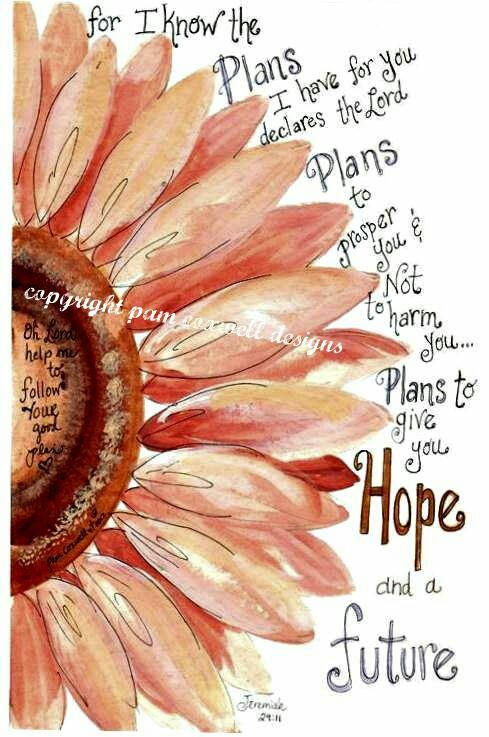 for I know the
Plans
I have for you
declares the Lord
Plans
to
prosper
you &
Not
to harm
you...
Plans to
give
you
Hope
and a
future
Jeremiah
29:11
copyright pam coxwell designs
Oh Lord
help me
to
follow
Your
good
plan